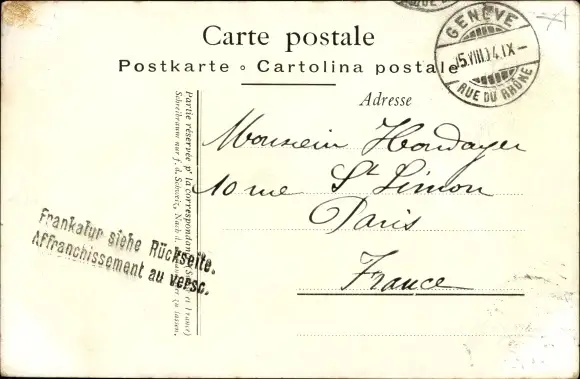 Carte postale
Postkarte ∘ Cartolina postale
Adresse
GENÈVE
15.VIII.04.IX–
RUE DU RHÔNE
Monsieur
10 rue St Simon
Paris
France
Frankatur siehe Rückseite.
Affranchissement au verso.
Partie réservée pr la correspondance
Schreibraum nur f. d. Schweiz,